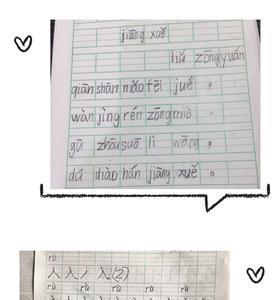 jiāng xuě
liǔ zōngyuán
qiān shān niǎo fēi jué 。
wàn jìng rén zōng miè
gū zhōu suō lì wēng 。
dú diào hán jiāng xuě 。
rù
入 入 ノ 入(2)
rù rù rù rù